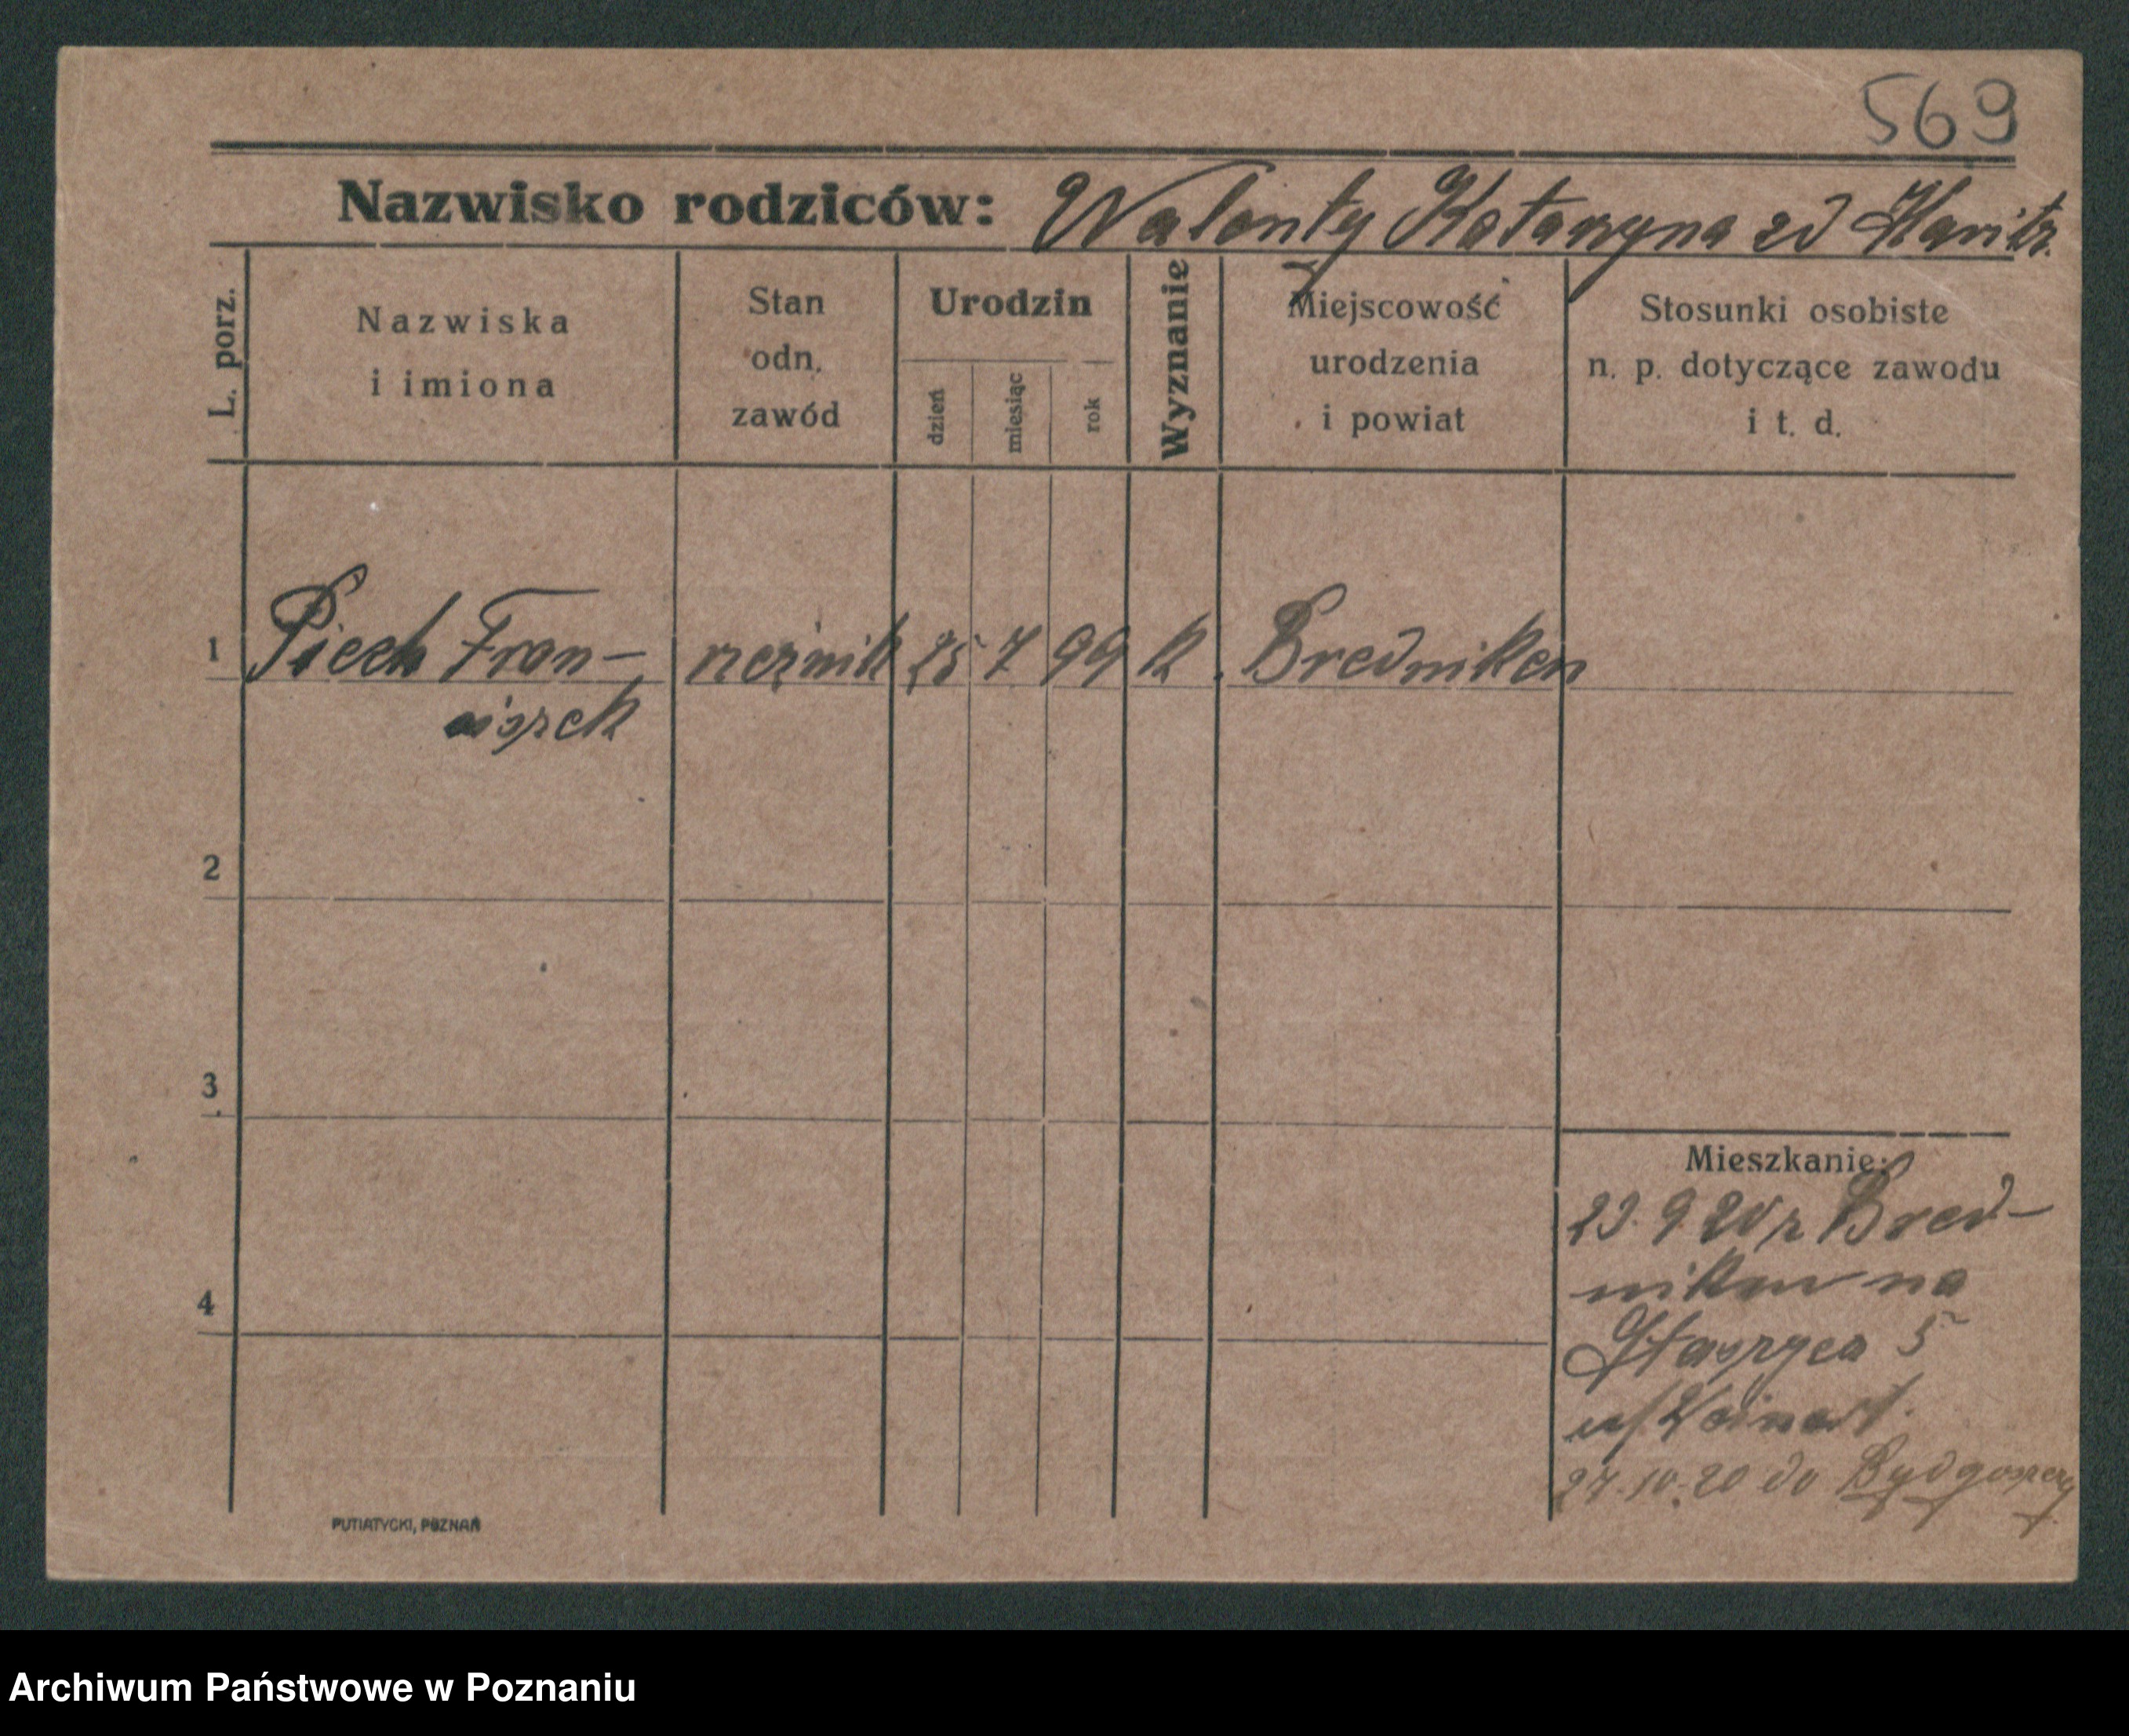 569
Nazwisko rodziców: Walenty Katarzyna zd
L. porz.
Nazwiska
i imiona
Stan
odn.
zawód
Urodzin
dzień
miesiąc
rok
Wyznanie
Miejscowość
urodzenia
i powiat
Stosunki osobiste
n. p. dotyczące zawodu
i t. d.
1 Piech Fran- rzeźnik 25 7 99 k. Bredniken
ciszek
2
3
4
Mieszkanie:
23.9.20 z Bred-
niken na
Staszyca 5
27.10.20 do Bydgoszczy
PUTIATYCKI, POZNAŃ
Archiwum Państwowe w Poznaniu